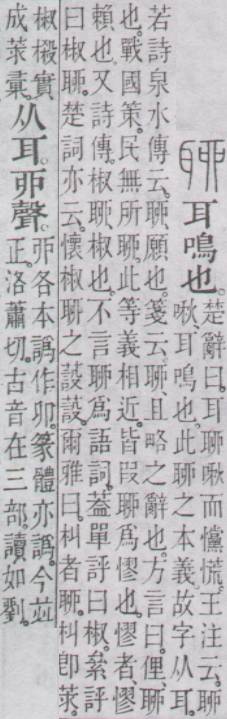 耳鳴也。
楚辭曰。耳聊啾而戃慌。王注云。聊
啾、耳鳴也。此聊之本義。故字从耳。
若詩泉水傳云。聊、願也。箋云。聊、且略之辭也。方言曰。俚、聊
也。戰國策。民無所聊。此等義相近。皆叚聊爲憀也。憀者、憀
賴也。又詩傳。椒聊、椒也。不言聊爲語詞。葢單評曰椒。絫評
曰椒聊。楚詞亦云。懷椒聊之蔎蔎。爾雅曰。朻者聊。朻卽莍。
椒樧實
成莍彙。
从耳。丣聲。
丣各本譌作卯。篆體亦譌。今並
正。洛蕭切。古音在三部。讀如劉。